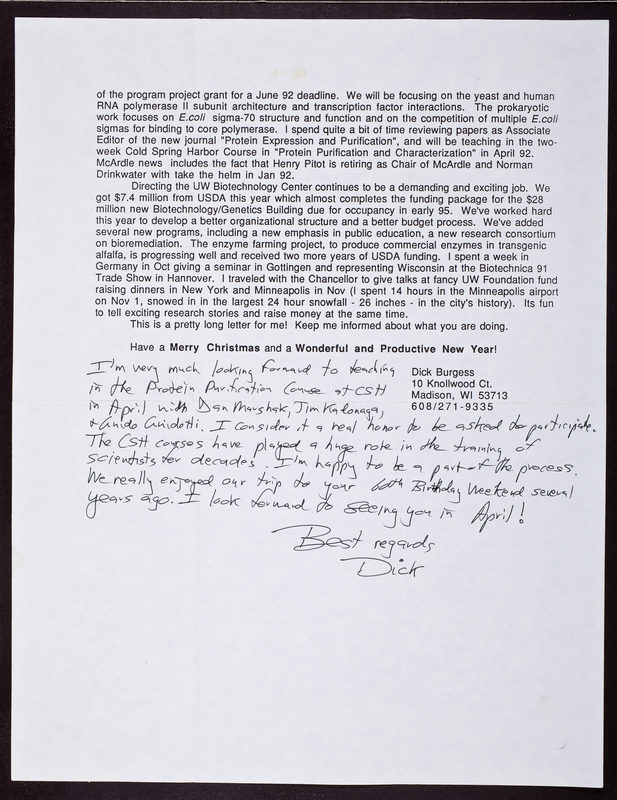 of the program project grant for a June 92 deadline. We will be focusing on the yeast and human
RNA polymerase II subunit architecture and transcription factor interactions. The prokaryotic
work focuses on E.coli sigma-70 structure and function and on the competition of multiple E.coli
sigmas for binding to core polymerase. I spend quite a bit of time reviewing papers as Associate
Editor of the new journal "Protein Expression and Purification", and will be teaching in the two-
week Cold Spring Harbor Course in "Protein Purification and Characterization" in April 92.
McArdle news includes the fact that Henry Pitot is retiring as Chair of McArdle and Norman
Drinkwater with take the helm in Jan 92.
Directing the UW Biotechnology Center continues to be a demanding and exciting job. We
got $7.4 million from USDA this year which almost completes the funding package for the $28
million new Biotechnology/Genetics Building due for occupancy in early 95. We've worked hard
this year to develop a better organizational structure and a better budget process. We've added
several new programs, including a new emphasis in public education, a new research consortium
on bioremediation. The enzyme farming project, to produce commercial enzymes in transgenic
alfalfa, is progressing well and received two more years of USDA funding. I spent a week in
Germany in Oct giving a seminar in Gottingen and representing Wisconsin at the Biotechnica 91
Trade Show in Hannover. I traveled with the Chancellor to give talks at fancy UW Foundation fund
raising dinners in New York and Minneapolis in Nov (I spent 14 hours in the Minneapolis airport
on Nov 1, snowed in in the largest 24 hour snowfall - 26 inches - in the city's history). Its fun
to tell exciting research stories and raise money at the same time.
This is a pretty long letter for me! Keep me informed about what you are doing.
Have a Merry Christmas and a Wonderful and Productive New Year!
Dick Burgess
10 Knollwood Ct.
Madison, WI 53713
608/271-9335
I'm very much looking forward to teaching
in the Protein Purification Course at CSH
in April with Dan Marshak, Jim Kadonaga,
& Guido Guidotti. I consider it a real honor to be asked to participate.
The CSH courses have played a huge role in the training of
scientists for decades. I'm happy to be a part of the process.
We really enjoyed our trip to your 60th Birthday Weekend several
years ago. I look forward to seeing you in April!
Best regards
Dick